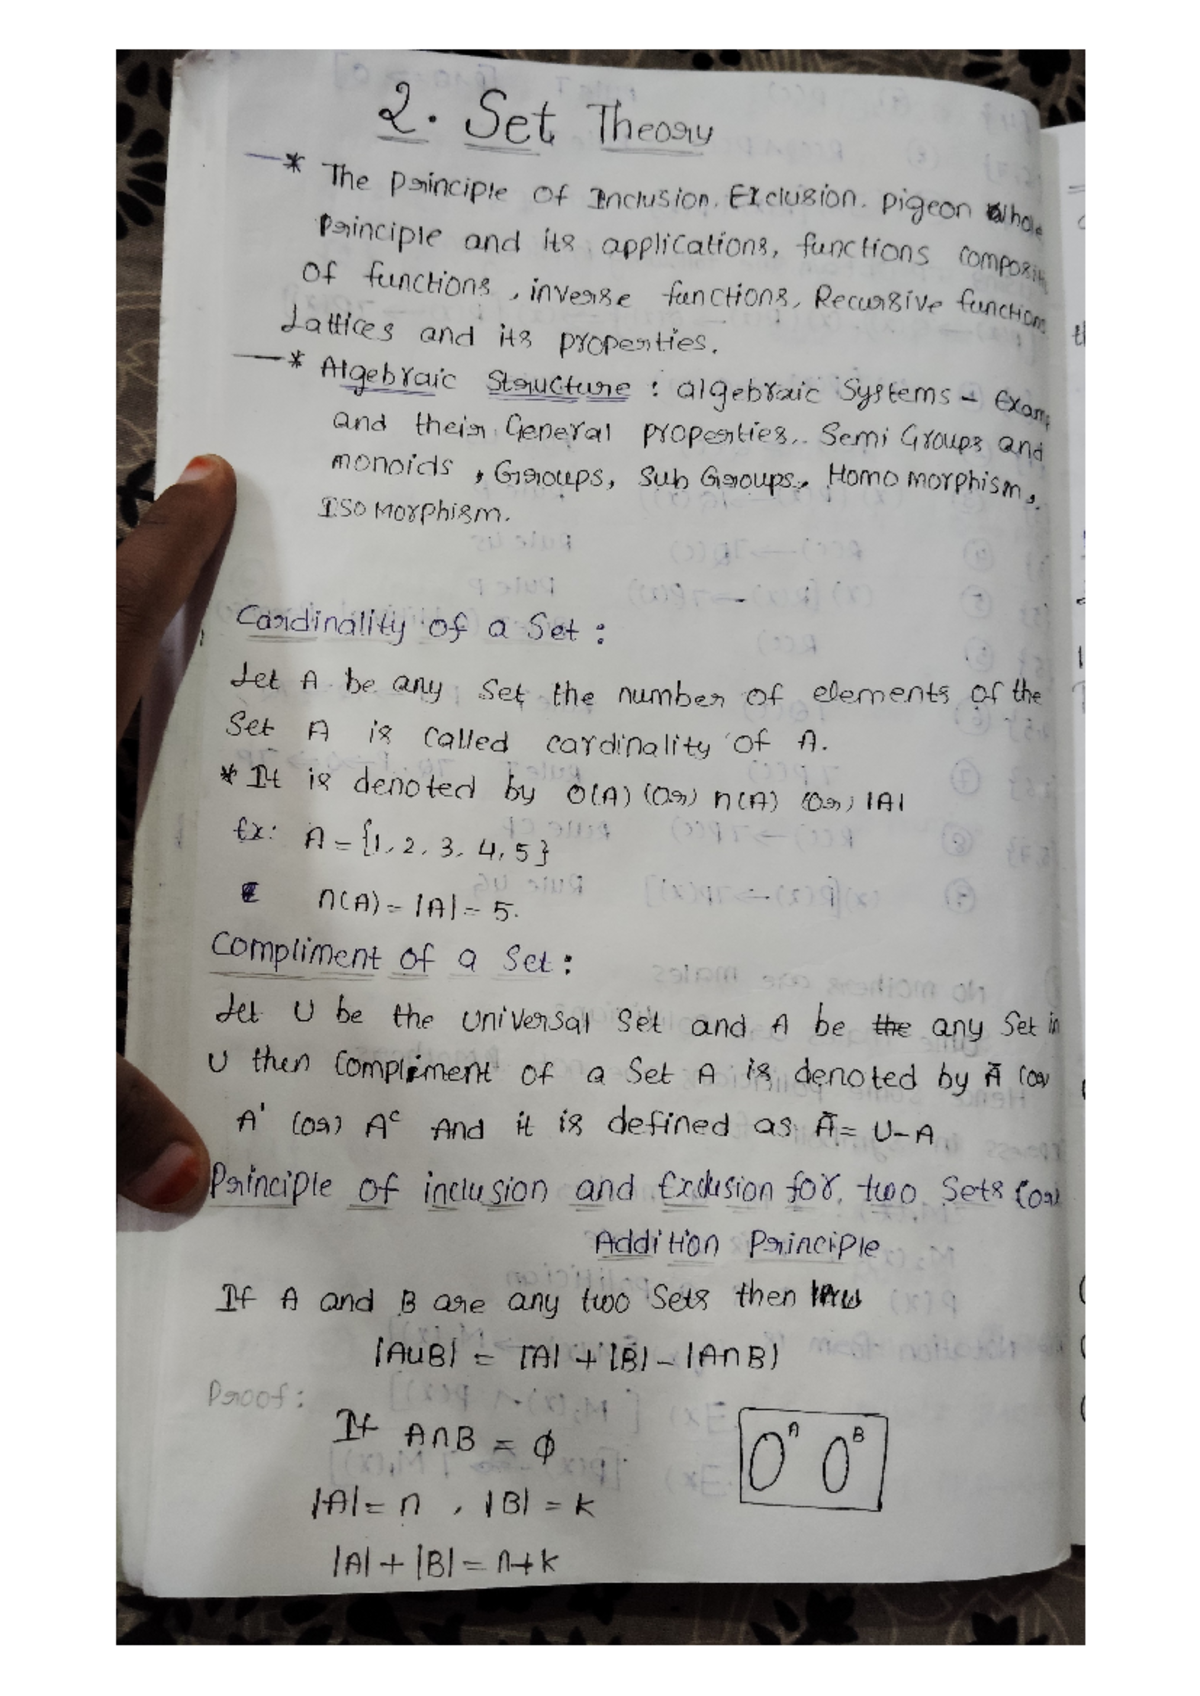 2. Set Theory
* The Principle of Inclusion. Exclusion. pigeon whole
Principle and its applications, functions composit
of functions, inverse functions, Recursive functions
Lattices and its properties.
* Algebraic Structure : algebraic Systems - Exam
and their General properties.. Semi Groups and
monoids, Groups, Sub Groups, Homo morphism,
Iso Morphism.
Cardinality of a Set :
Let A be any Set the number of elements of the
Set A is called cardinality of A.
* It is denoted by O(A) (or) n(A) (or) |A|
Ex: A = {1, 2, 3, 4, 5}
n(A) = |A| = 5.
Compliment of a Set :
Let U be the Universal Set and A be the any Set in
U then Compliment of a Set A is denoted by Ā (or
A' (or) Aᶜ And it is defined as Ā = U-A
Principle of inclusion and Exclusion for two Sets (or)
Addition Principle
If A and B are any two Sets then
|A∪B| = |A| + |B| - |A∩B|
Proof :
If A∩B = ϕ
A B
|A| = n , |B| = k
|A| + |B| = n+k